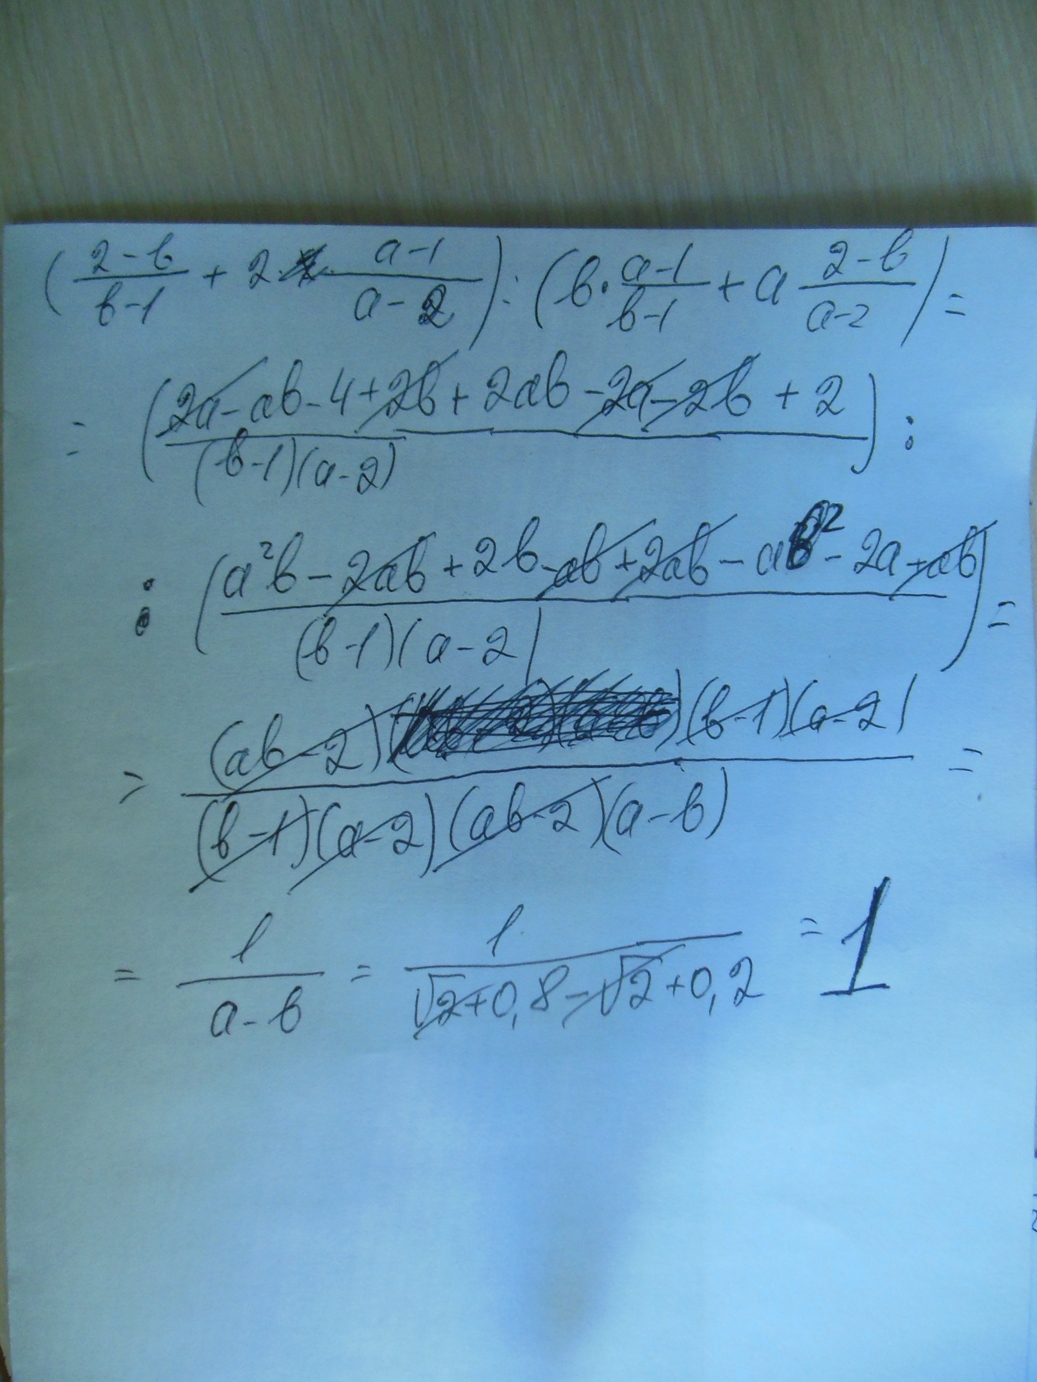 ( (2-b)/(b-1) + 2 · (a-1)/(a-2) ) : ( b · (a-1)/(b-1) + a (2-b)/(a-2) ) =
= ( (2a - ab - 4 + 2b + 2ab - 2a - 2b + 2)/((b-1)(a-2)) ) :
: ( (a²b - 2ab + 2b - ab + 2ab - ab² - 2a + ab)/((b-1)(a-2)) ) =
= ((ab-2)(b-1)(a-2))/((b-1)(a-2)(ab-2)(a-b)) =
= 1/(a-b) = 1/(√2+0,8-√2+0,2) = 1